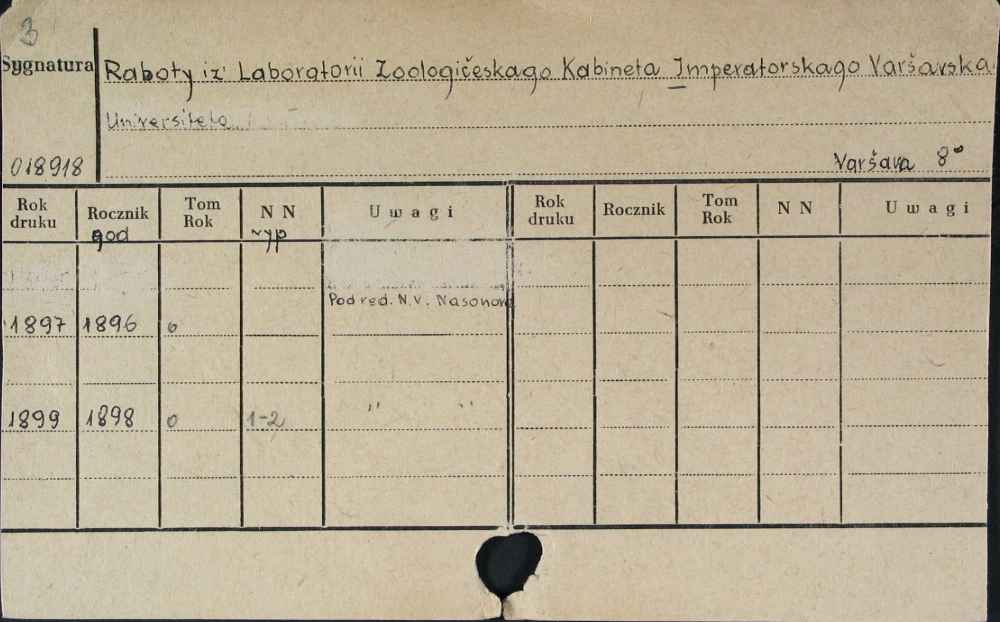 3
Sygnatura Raboty iz' Laboratorii Zoologičeskago Kabineta Imperatorskago Varšavska
Universiteta
018918 Varšava 8°
Rok druku Rocznik Tom Rok N N Uwagi Rok druku Rocznik Tom Rok N N Uwagi
god vyp
Pod red. N.V. Nasonova
1897 1896 0
1899 1898 0 1-2 " "